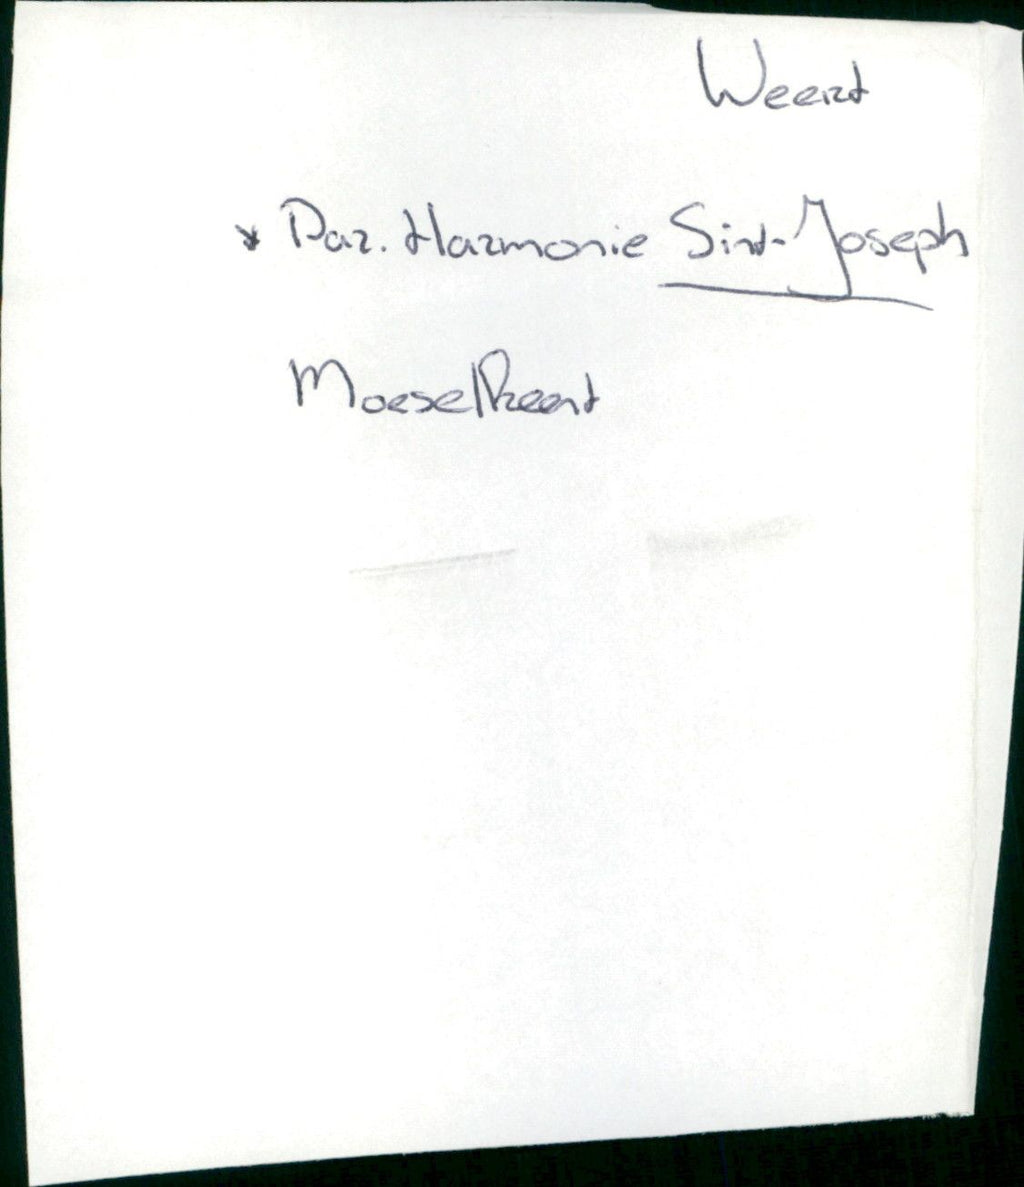 Weert
* Par. Harmonie Sint-Joseph
Moeselpeent